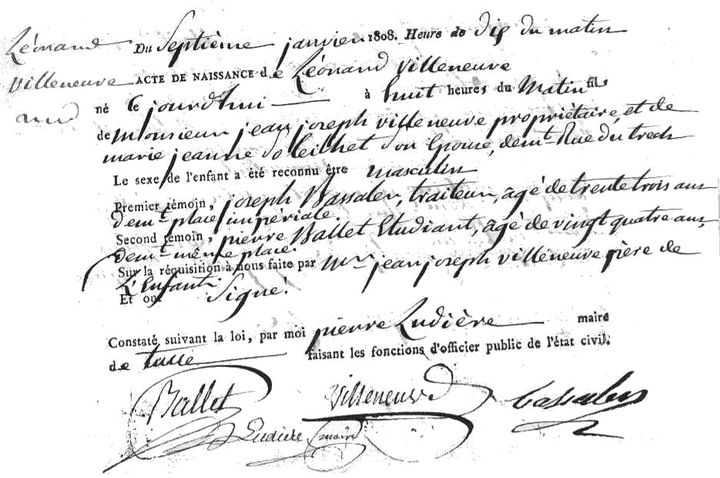 Léonard
Villeneuve
Du Septième janvier 1808. Heure de dix du matin
ACTE DE NAISSANCE de Léonard Villeneuve
né le jourd'hui à huit heures du Matin fils
de Monsieur jean joseph villeneuve propriétaire, et de
marie jeanne Soleilhet Son Epouse, demt. Rue du trech
Le sexe de l'enfant a été reconnu être masculin
Premier témoin, joseph Bassaler, traiteur, agé de trente trois ans
demt. place impériale.
Second témoin, pierre Ballet Etudiant, agé de vingt quatre ans,
demt. même place.
Sur la réquisition à nous faite par Mr. jean joseph villeneuve père de
L'Enfant
Et ont Signé.
Constaté, suivant la loi, par moi pierre Ludière maire
de tulle faisant les fonctions d'officier public de l'état civil.
Ballet Villeneuve Bassaler
Ludière maire